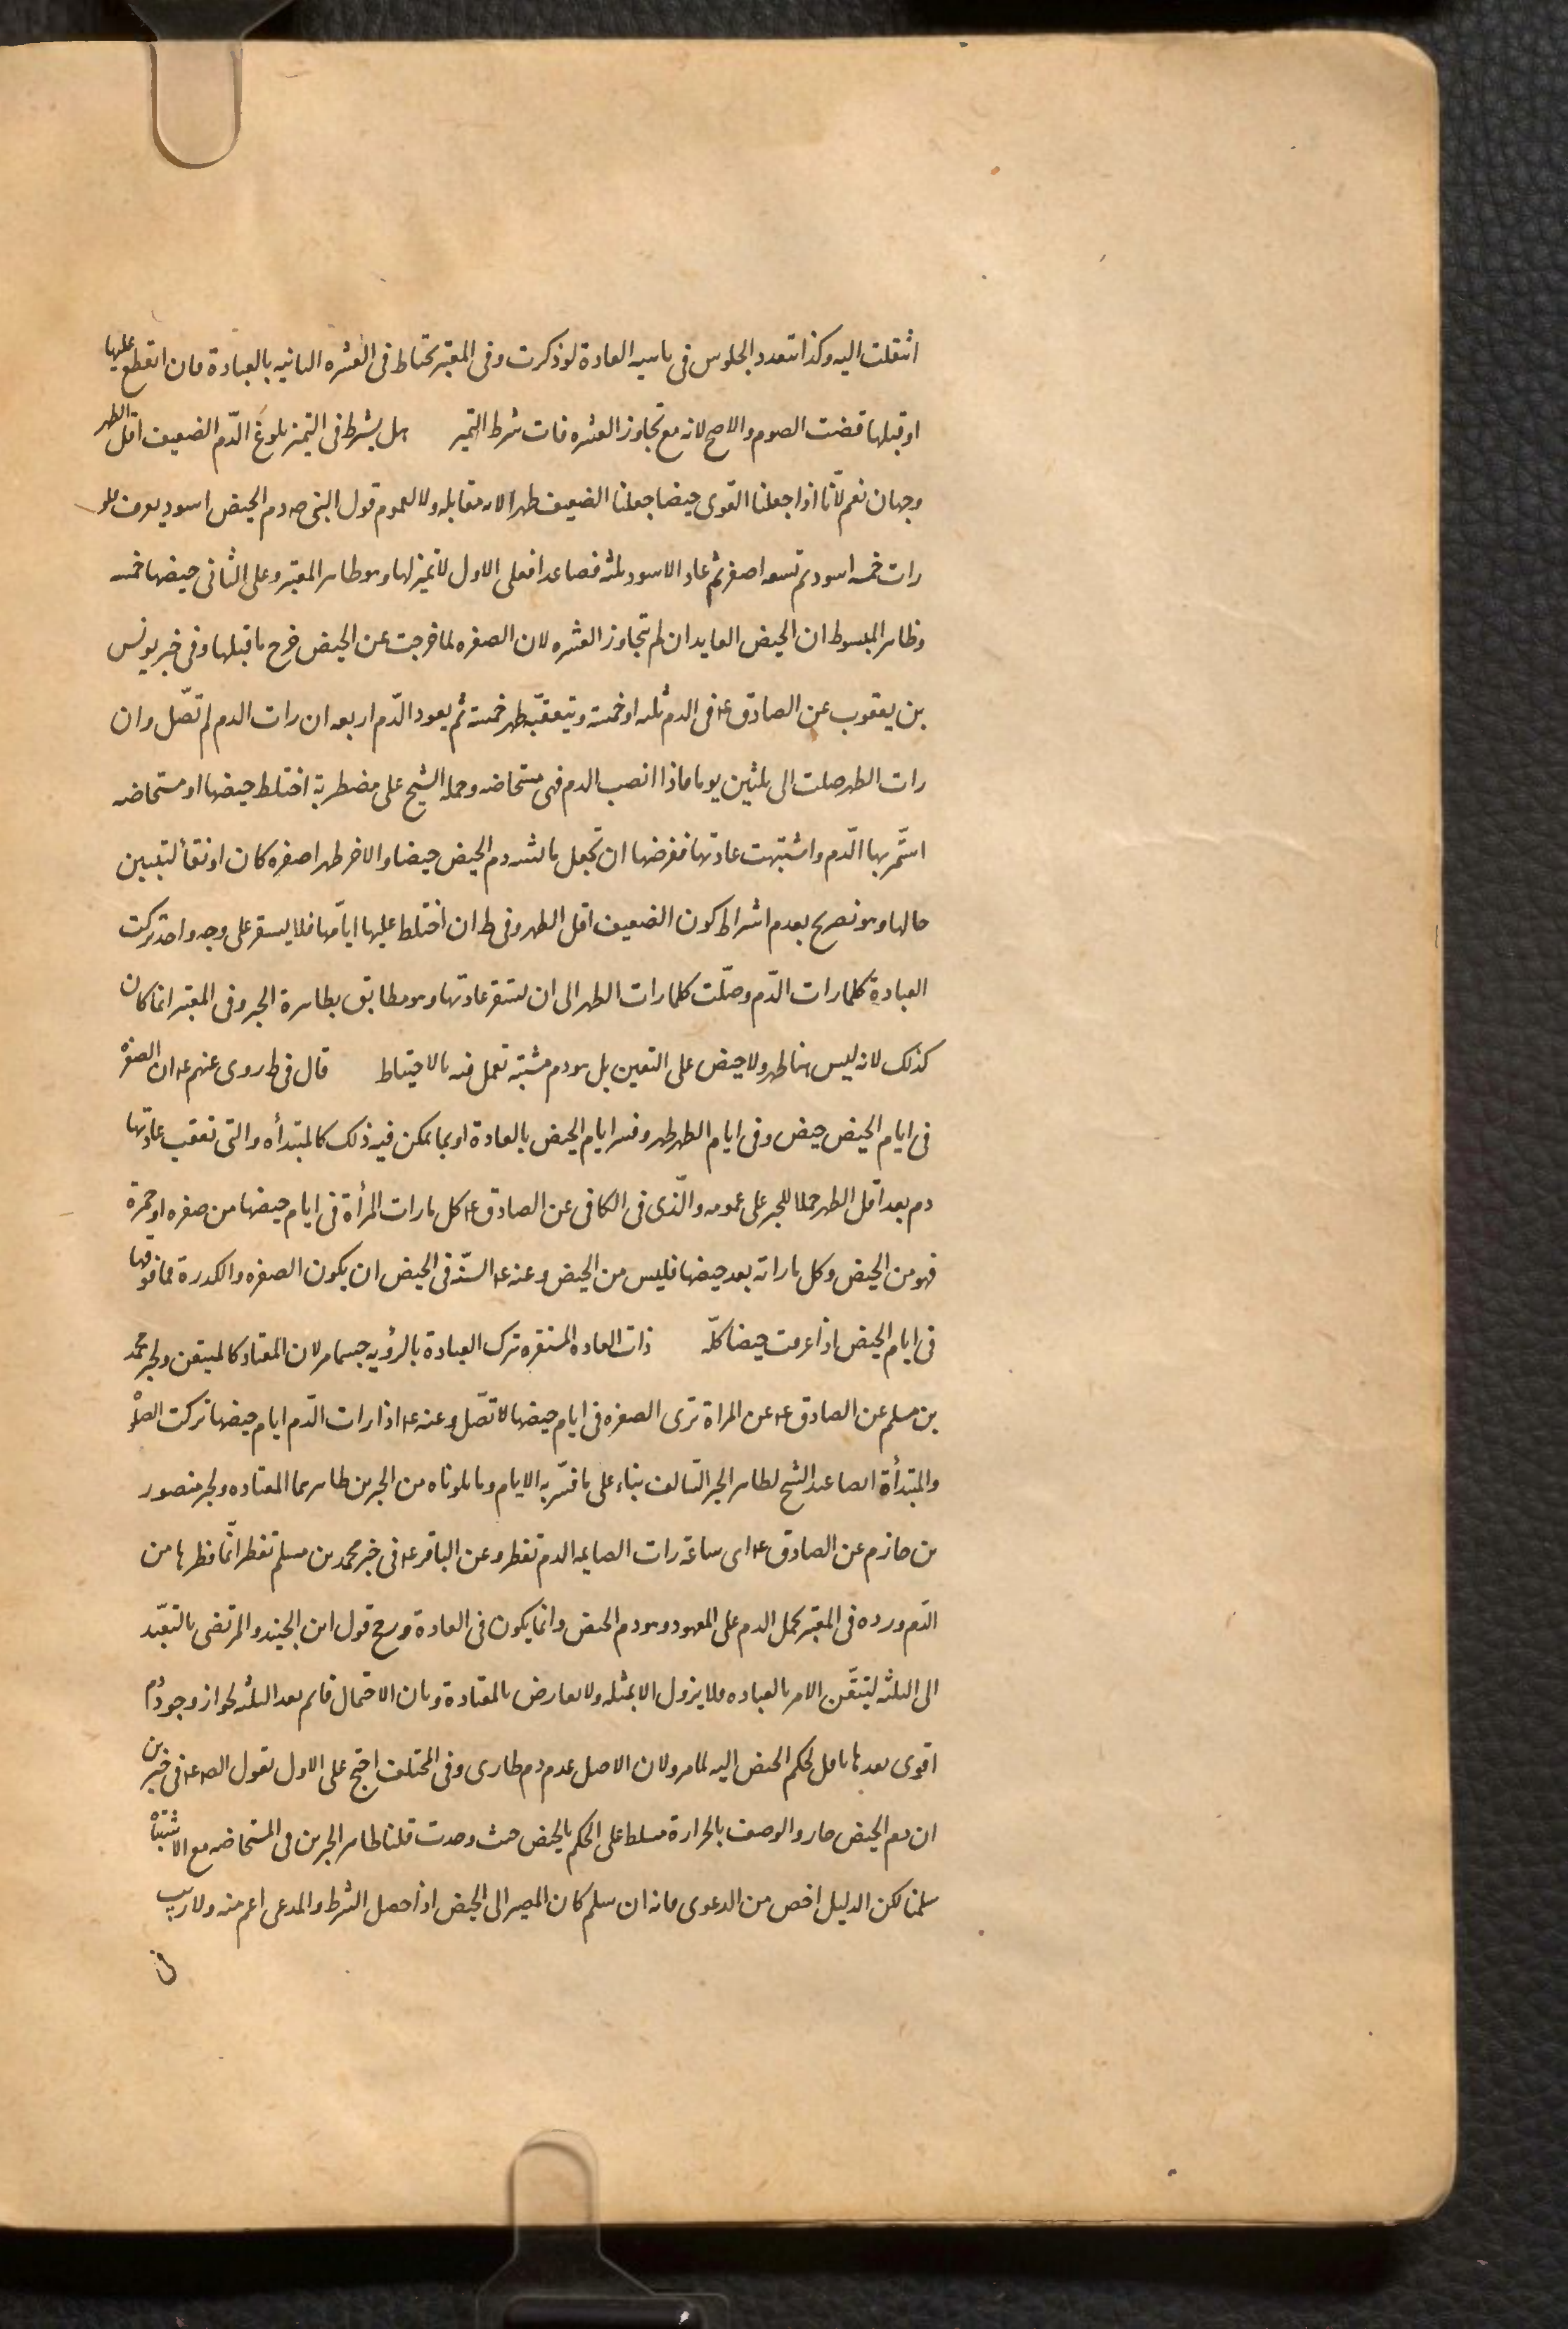 انتقلت اليه وكذا تتعدد الجلوس فى ناسيه العادة لو ذكرت وفى المعتبر تحتاط فى العشره الثانيه بالعبادة فان انقطع عليها
او قبلها قضت الصوم والاصح لا لانه مع تجاوز العشره فات شرط التميز هل يشترط فى التميز بلوغ الدّم الضعيف اقل الطهر
وجهان نعم لأنا اذا جعلنا القوى حيضا جعلنا الضعيف طهرا لانه مقابله ولا لعموم قول النبى صه دم الحيض اسود يعرف فلو
رات خمسه اسود ثم تسعه اصفر ثم عاد الاسود ثلثه فصاعدا فعلى الاول لا تميز لها وهو ظاهر المعتبر وعلى الثانى حيضها خمسه
وظاهر المبسوط ان الحيض العايد ان لم يتجاوز العشره لان الصفره لما خرجت عن الحيض خرج ما قبلها وفى خبر يونس
بن يعقوب عن الصادق ع فى الدم ثلثه او خمسة ويتعقبه طهر خمسة ثم يعود الدّم اربعه ان رات الدم لم تصّل وان
رات الطهر صلت الى ثلثين يوما فاذا انصب الدم فهى مستحاضه وحمله الشيخ على مضطربة اختلط حيضها او مستحاضه
استمّر بها الدّم واشتبهت عادتها ففرضها ان تجعل ما يشبه دم الحيض حيضا والاخر طهرا صفره كان او نقأ ليتبين
حالها وهو تصريح بعدم اشتراط كون الضعيف اقل الطهر وفى ط ان اختلط عليها ايامها فلا يستقر على وجه واحد تركت
العبادة كلما رات الدّم وصلّت كلما رات الطهر الى ان تستقر عادتها وهو مطابق بظاهره الخبر وفى المعتبر انما كان
كذلك لانه ليس هنا طهر ولا حيض على التعين بل هو دم مشتبه تعمل فيه بالاحتياط قال فى ط روى عنهم ع ان الصفرة
فى ايام الحيض حيض وفى ايام الطهر طهر وفسر ايام الحيض بالعادة او بما يمكن فيه ذلك كالمبتدأه والتى تعقب عادتها
دم بعد اقل الطهر حملا للخبر على عمومه والّذى فى الكافى عن الصادق ع كل ما رات المرأة فى ايام حيضها من صفره او حمرة
فهو من الحيض وكل ما راته بعد حيضها فليس من الحيض وعنه ع السّنة فى الحيض ان يكون الصفره والكدرة فما فوقها
فى ايام الحيض اذا عرفت حيضا كلّه ذات العاده المستقره تترك العبادة بالرؤيه حسبما مر لان المعتاد كالمتيقن ولخبر محمد
بن مسلم عن الصادق ع عن المراة ترى الصفره فى ايام حيضها لا تصّل وعنه ع اذا رات الدّم ايام حيضها تركت الصلوة
والمبتدأة ايضا عند الشيخ لظاهر الخبر السالف بناء على ما فسّر به الايام وما تلوناه من الخبرين ظاهرهما المعتاده ولخبر منصور
بن حازم عن الصادق ع اى ساعة رات الصايمه الدم تفطر وعن الباقر ع فى خبر محمد بن مسلم تفطر انّما فطرها من
الدّم ورده فى المعتبر بحمل الدم على المعهود وهو دم الحيض وانما يكون فى العادة ورجح قول ابن الجنيد والمرتضى بالتعبّد
الى الثلثه لتيقّن الامر بالعباده فلا يزول الا بمثله ولا يعارض بالمعتادة وبان الاحتمال قايم بعد الثلثه لجواز وجود دم
اقوى بعدها ناقل لحكم الحيض اليه لما مر ولان الاصل عدم دم طارى وفى المختلف احتج على الاول بقول الصـ ع فى خبرين
ان دم الحيض حار والوصف بالحرارة مسلط على الحكم بالحيض حيث وجدت قلنا ظاهر الخبرين فى المستحاضه مع الاشتباه
سلمنا لكن الدليل اخص من الدعوى فانه ان سلم كان المصير الى الحيض اذا حصل الشرط والمدعى اعم منه ولا ريب